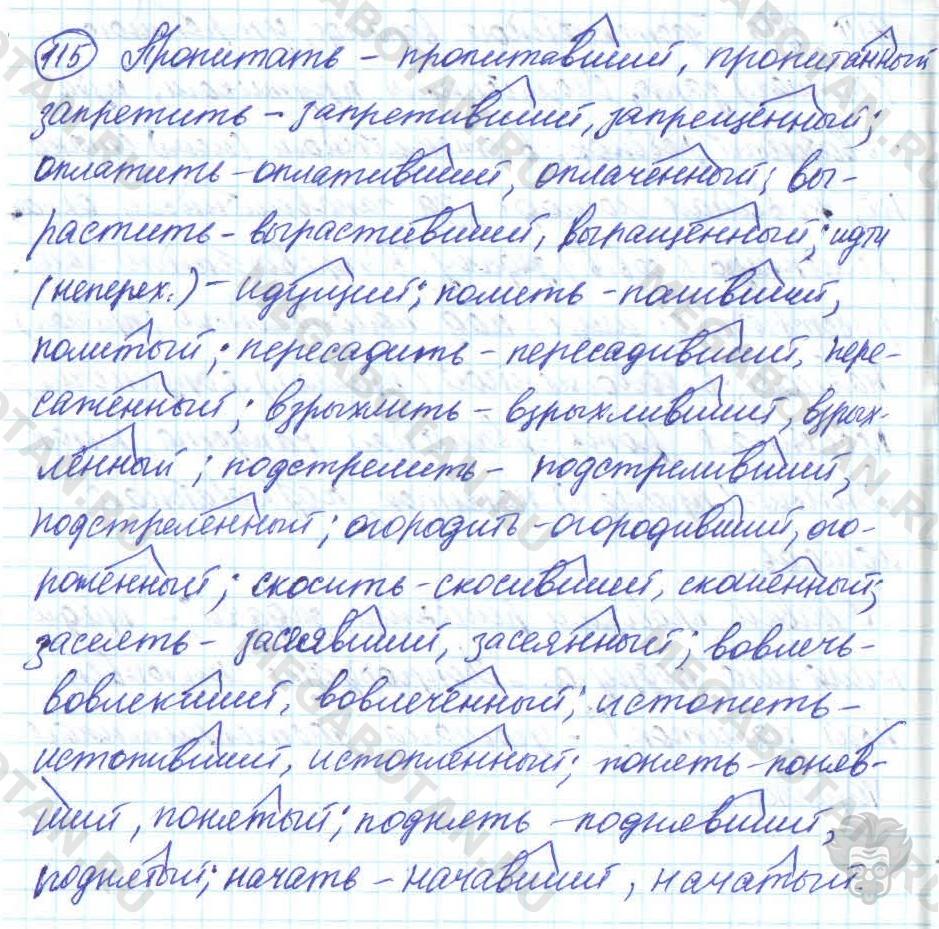 115 Пропитать – пропитавший, пропитанный
запретить – запретивший, запрещённый;
оплатить – оплативший, оплаченный; вы-
растить – вырастивший, выращенный; идти
(неперех.) – идущий; полить – поливший,
политый; пересадить – пересадивший, пере-
саженный; взрыхлить – взрыхливший, взрых-
лённый; подстрелить – подстреливший,
подстреленный; огородить – огородивший, ого-
роженный; скосить – скосивший, скошенный;
засеять – засеявший, засеянный; вовлечь –
вовлекший, вовлечённый; истопить –
истопивший, истопленный; понять – поняв-
ший, понятый; поднять – поднявший,
поднятый; начать – начавший, начатый.
MEGABOTAN.RU